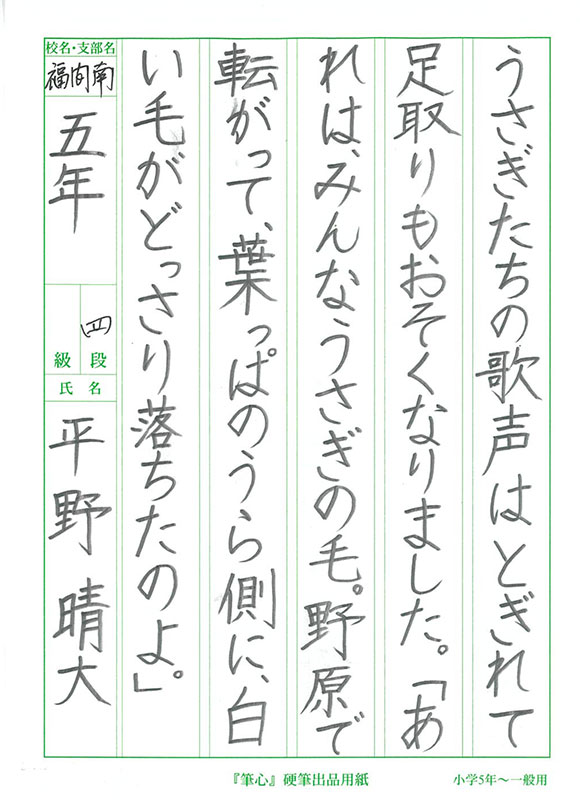 うさぎたちの歌声はとぎれて
足取りもおそくなりました。「あ
れは、みんなうさぎの毛。野原で
転がって、葉っぱのうら側に、白
い毛がどっさり落ちたのよ。」
校名・支部名
福間南
五年
四
段
級
氏名
平野晴大
『筆心』硬筆出品用紙
小学5年～一般用